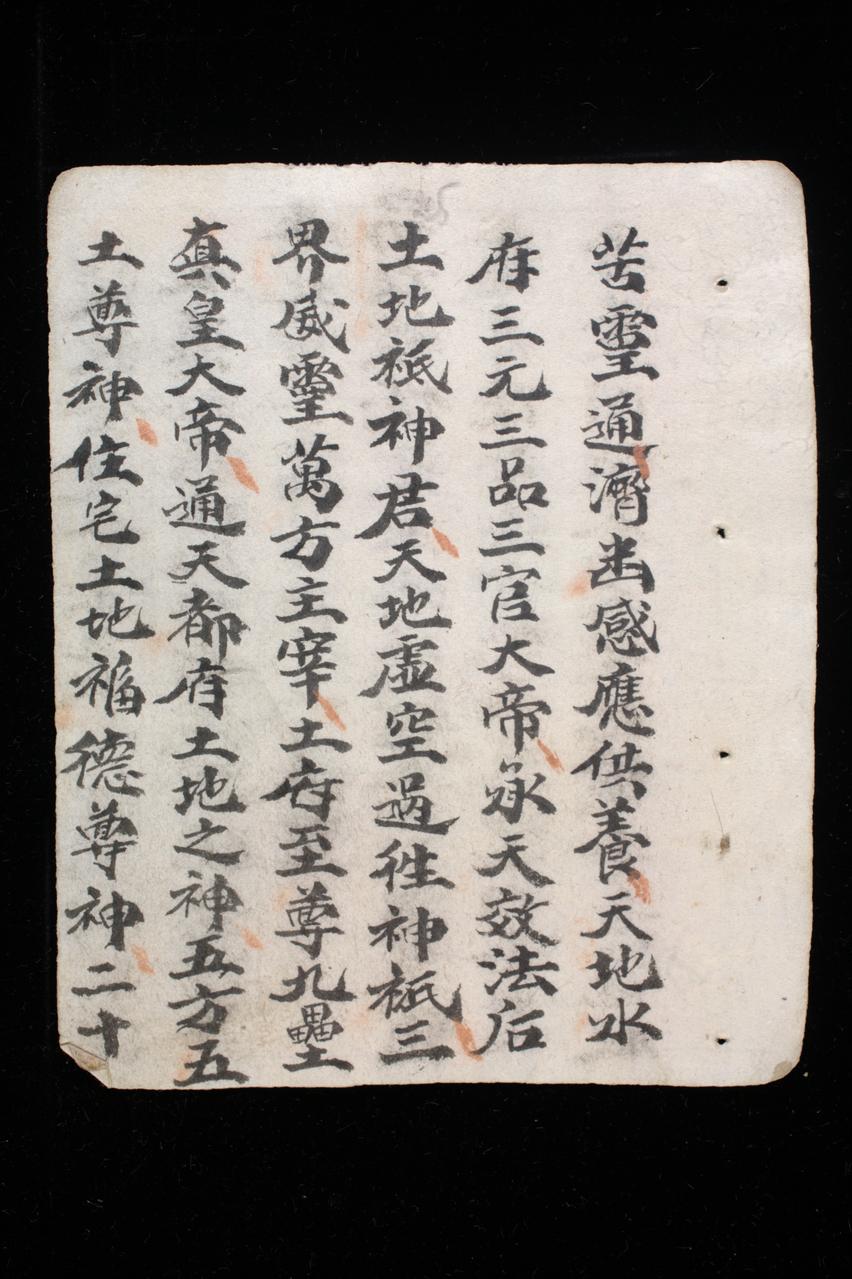 苦靈通濟幽感應供養天地水
府三元三品三官大帝承天效法后
土地祇神君天地虛空過往神祇三
界威靈萬方主宰土府至尊九壘
真皇大帝通天都府土地之神五方五
土尊神住宅土地福德尊神二十